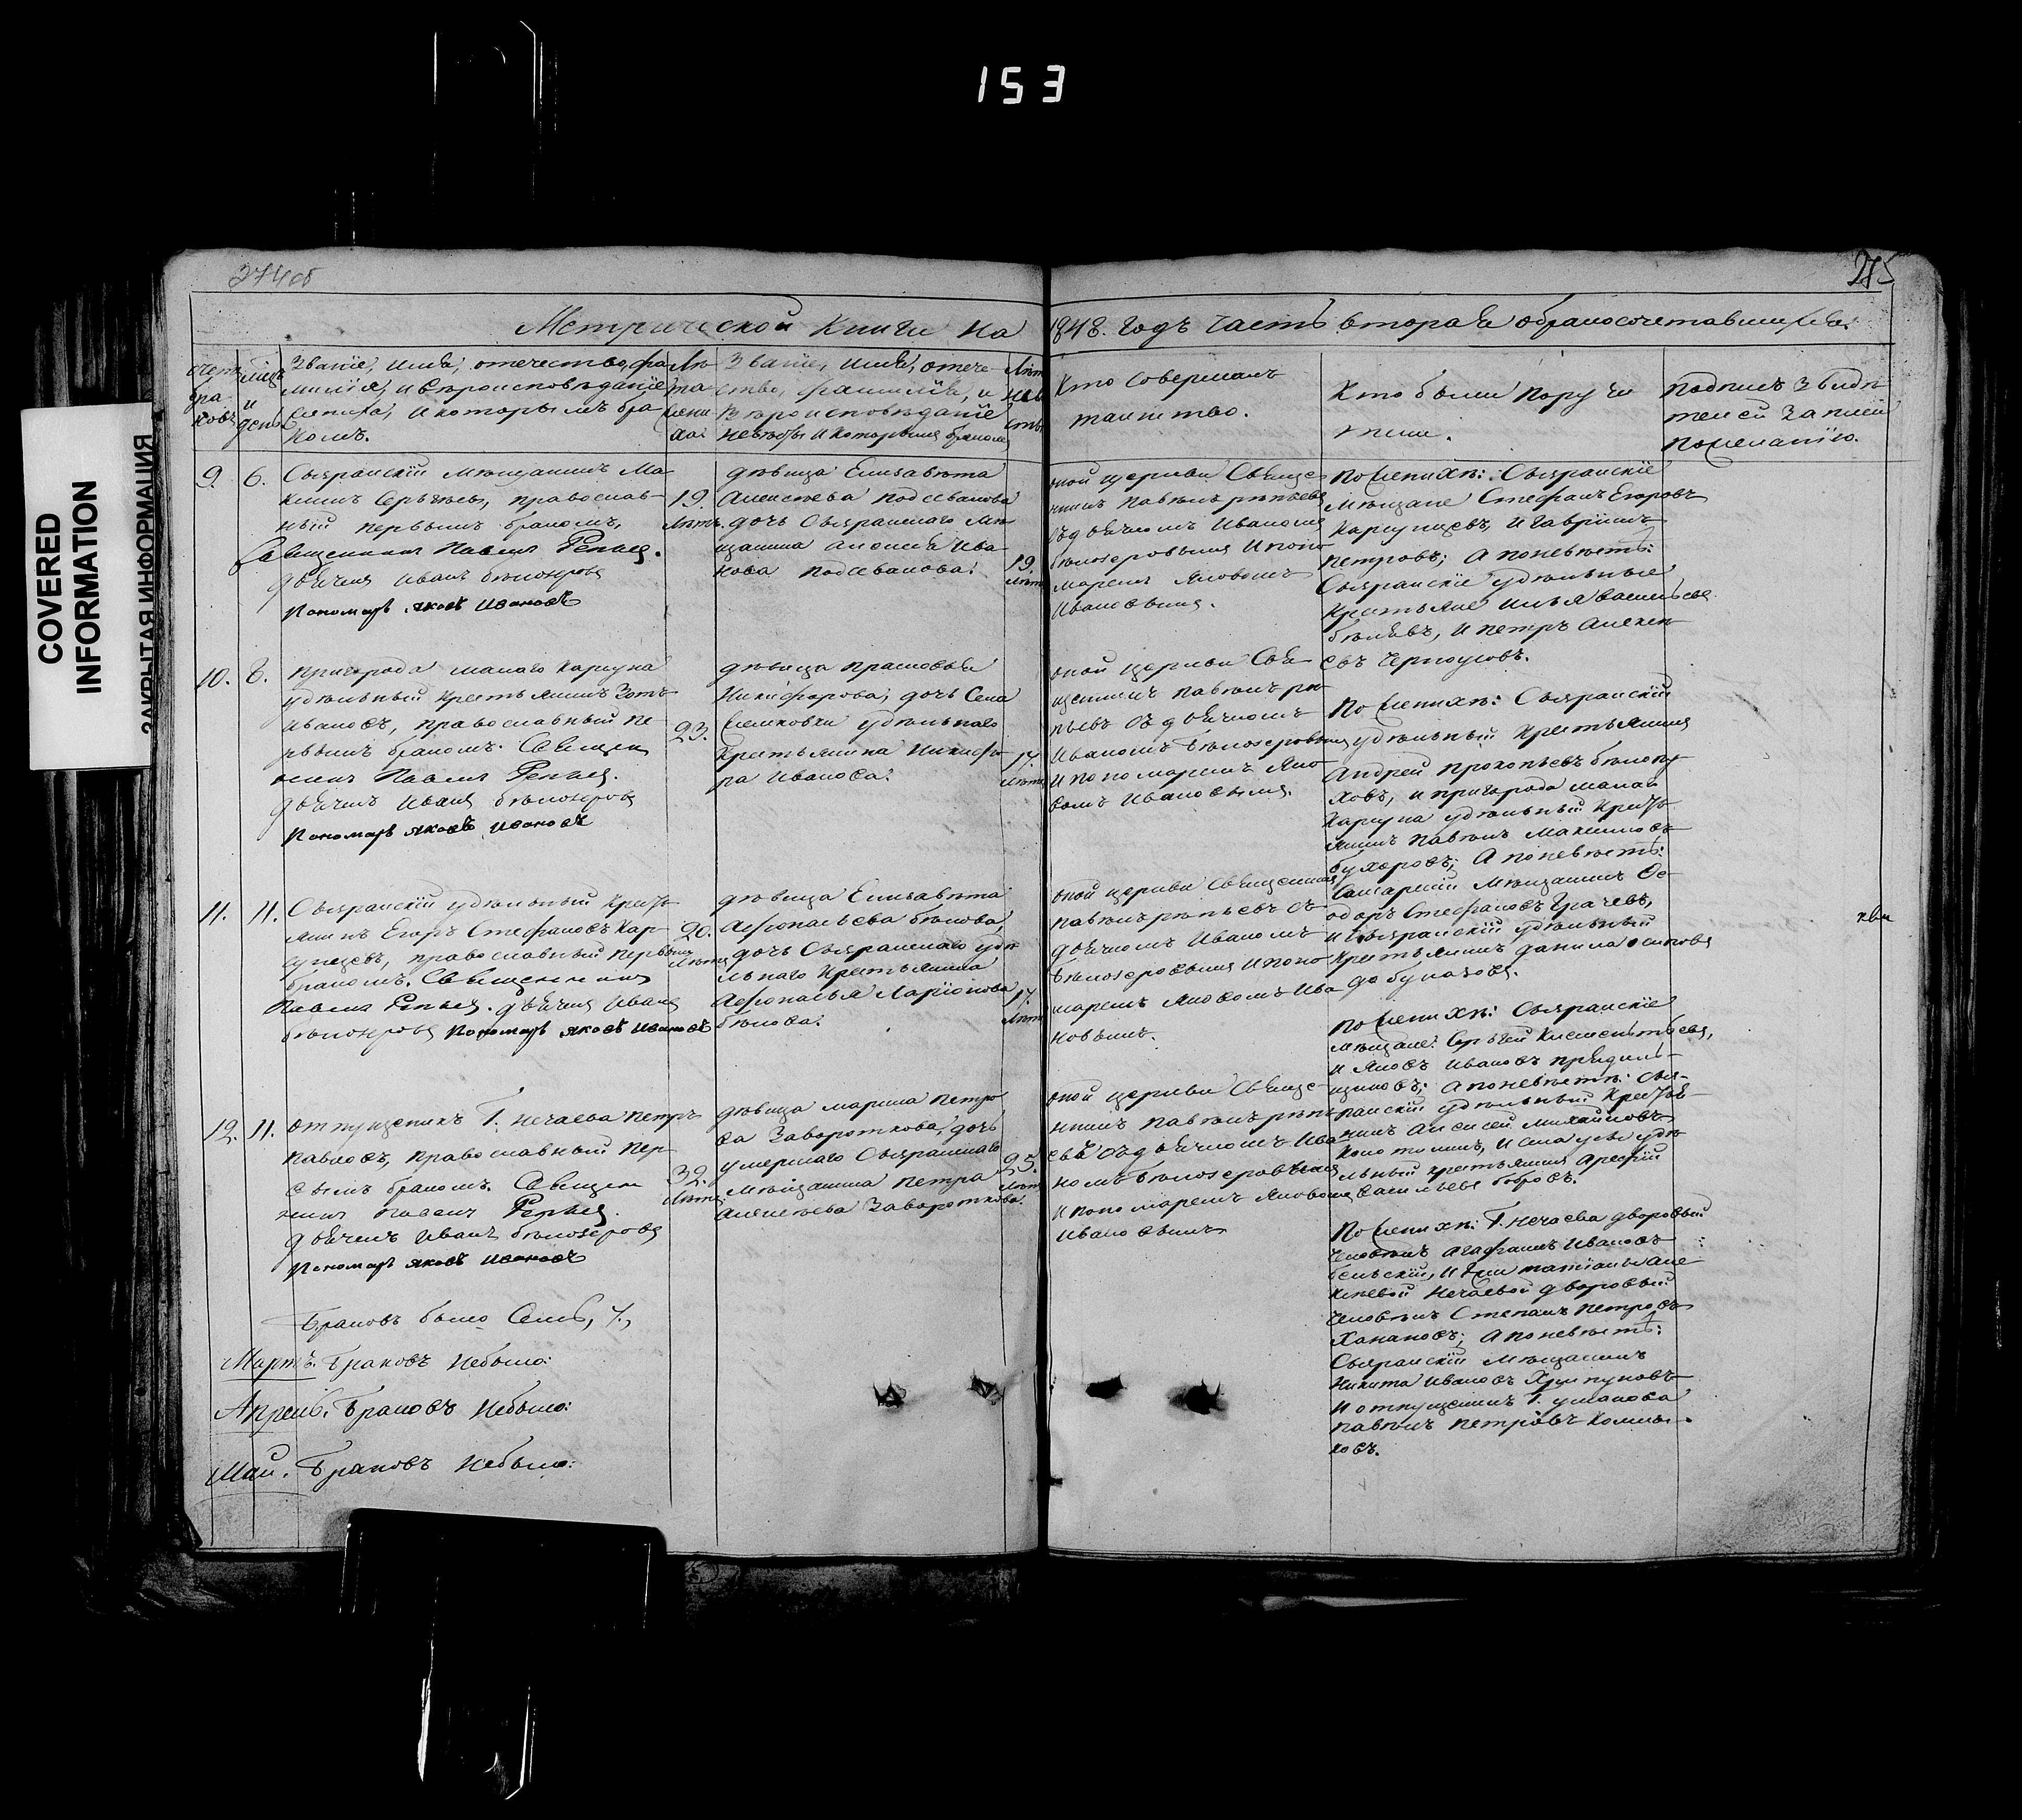 153
COVERED
INFORMATION
ЗАКРЫТАЯ ИНФОРМАЦИЯ
274об
275
Метрической Книги на 1848. годъ часть вторая о бракосочетавшихся.
Счетъ браковъ
мѣсяцъ и день
Званіе, имя, отечество, фа-
милія, и вѣроисповѣданіе
жениха, и которымъ бра-
комъ.
Лѣта жениха
Званіе, имя, отече-
ство, фамилія, и
вѣроисповѣданіе
невѣсты и которымъ бракомъ
Лѣта невѣсты
Кто совершалъ
таинство.
Кто были поручи
тели.
Подпись свидѣ
телей записи
по желанію.
9. 6.
Сызранскій мѣщанинъ Ма
ксимъ Сергѣевъ, православ-
ный первымъ бракомъ,
Священникъ Павелъ Репьев.
Дьячекъ Иванъ Бѣлозеровъ
Пономарь Яковъ Ивановъ
19.
лѣтъ.
дѣвица Елизавѣта
Алексѣева Подсевалова
дочь Сызранскаго мѣ
щанина Алексѣя Ива
нова Подсевалова.
19.
лѣтъ
оной церкви Свяще
никъ Павелъ Репьевъ
съ дьячкомъ Иваномъ
Бѣлозеровымъ и поно
маремъ Яковомъ
Ивановымъ.
по женихѣ: Сызранскіе
мѣщане Стефанъ Егоровъ
Карсунцевъ, и Гавріилъ
Петровъ; а по невѣстѣ:
Сызранскіе удѣльные
крестьяне Илья Васильевъ
Бѣляевъ, и Петръ Алексѣ
евъ Черноусовъ.
10. 8.
пригорода малаго Карсуна
удѣльный крестьянинъ Зотъ
Ивановъ, православный пе
рвымъ бракомъ. Священ
никъ Павелъ Репьев.
Дьячекъ Иванъ Бѣлозеровъ
Пономарь Яковъ Ивановъ
23.
дѣвица Прасковья
Никифорова, дочь Села
удѣльнаго
крестьянина Никифо
ра Иванова.
17.
лѣтъ
оной церкви Свя
щенникъ Павелъ Ре
пьевъ съ дьячкомъ
Иваномъ Бѣлозеровымъ
и пономаремъ Яко
вомъ Ивановымъ.
По женихѣ: Сызранскій
удѣльный крестьянинъ
Андрей Прокопьевъ
и пригорода малаго
Карсуна удѣльный кресть
янинъ Павелъ Максимовъ
Бухоровъ; а по невѣстѣ:
Самарскій мѣщанинъ Ѳе
одоръ Стефановъ Грачевъ,
и Сызранскій удѣльный
крестьянинъ Данила Осиповъ
11. 11.
Сызранскій удѣльный кресть
янинъ Егоръ Стефановъ Кар-
сунцевъ, православный первымъ
бракомъ. Священникъ
Павелъ Репьев. Дьячекъ Иванъ
Бѣлозеровъ Пономарь Яковъ Ивановъ
20.
лѣтъ
дѣвица Елизавѣта
Аѳонасьева Бѣлова,
дочь Сызранскаго удѣ
льнаго крестьянина
Аѳонасья Ларіонова
Бѣлова.
17.
лѣтъ
оной церкви Священникъ
Павелъ Репьевъ съ
дьячкомъ Иваномъ
Бѣлозеровымъ и поно
маремъ Яковомъ Ива
новымъ.
по женихѣ: Сызранскіе
мѣщане: Сергѣй
и Яковъ Ивановъ
а по невѣстѣ: Сыз-
ранскій удѣльный кресть
нинъ Алексѣй Михайловъ
и удѣ
льный крестьянинъ Арефій
Васильевъ Бобровъ.
12. 11.
отпущеникъ Г. Нечаева Петръ
Павловъ, православный пер-
вымъ бракомъ. Священ
никъ Павелъ Репьев.
Дьячекъ Иванъ Бѣлозеровъ
Пономарь Яковъ Ивановъ
32.
лѣтъ
дѣвица Марина Петро
ва Завороткова, дочь
умершаго Сызранскаго
мѣщанина Петра
Алексѣева Завороткова.
25.
лѣтъ
оной церкви Свяще-
никъ Павелъ Репь
евъ съ дьячкомъ Ива
номъ Бѣлозеровымъ
и пономаремъ Яковомъ
Ивановымъ
По женихѣ: Г. Нечаева дворовый
человѣкъ Агафонъ Ивановъ
Бѣльскій, и Г-жи Татіаны Але
ксѣевой Нечаевой дворовый
человѣкъ Степанъ Петровъ
Ханановъ; а по невѣстѣ:
Сызранскій мѣщанинъ
Никита Ивановъ
и отпущеникъ Г. Ушакова
Павелъ Петровъ
ковъ.
Браковъ было семь, 7.,
Мартъ. Браковъ небыло:
Апрель. Браковъ небыло:
Май. Браковъ небыло: